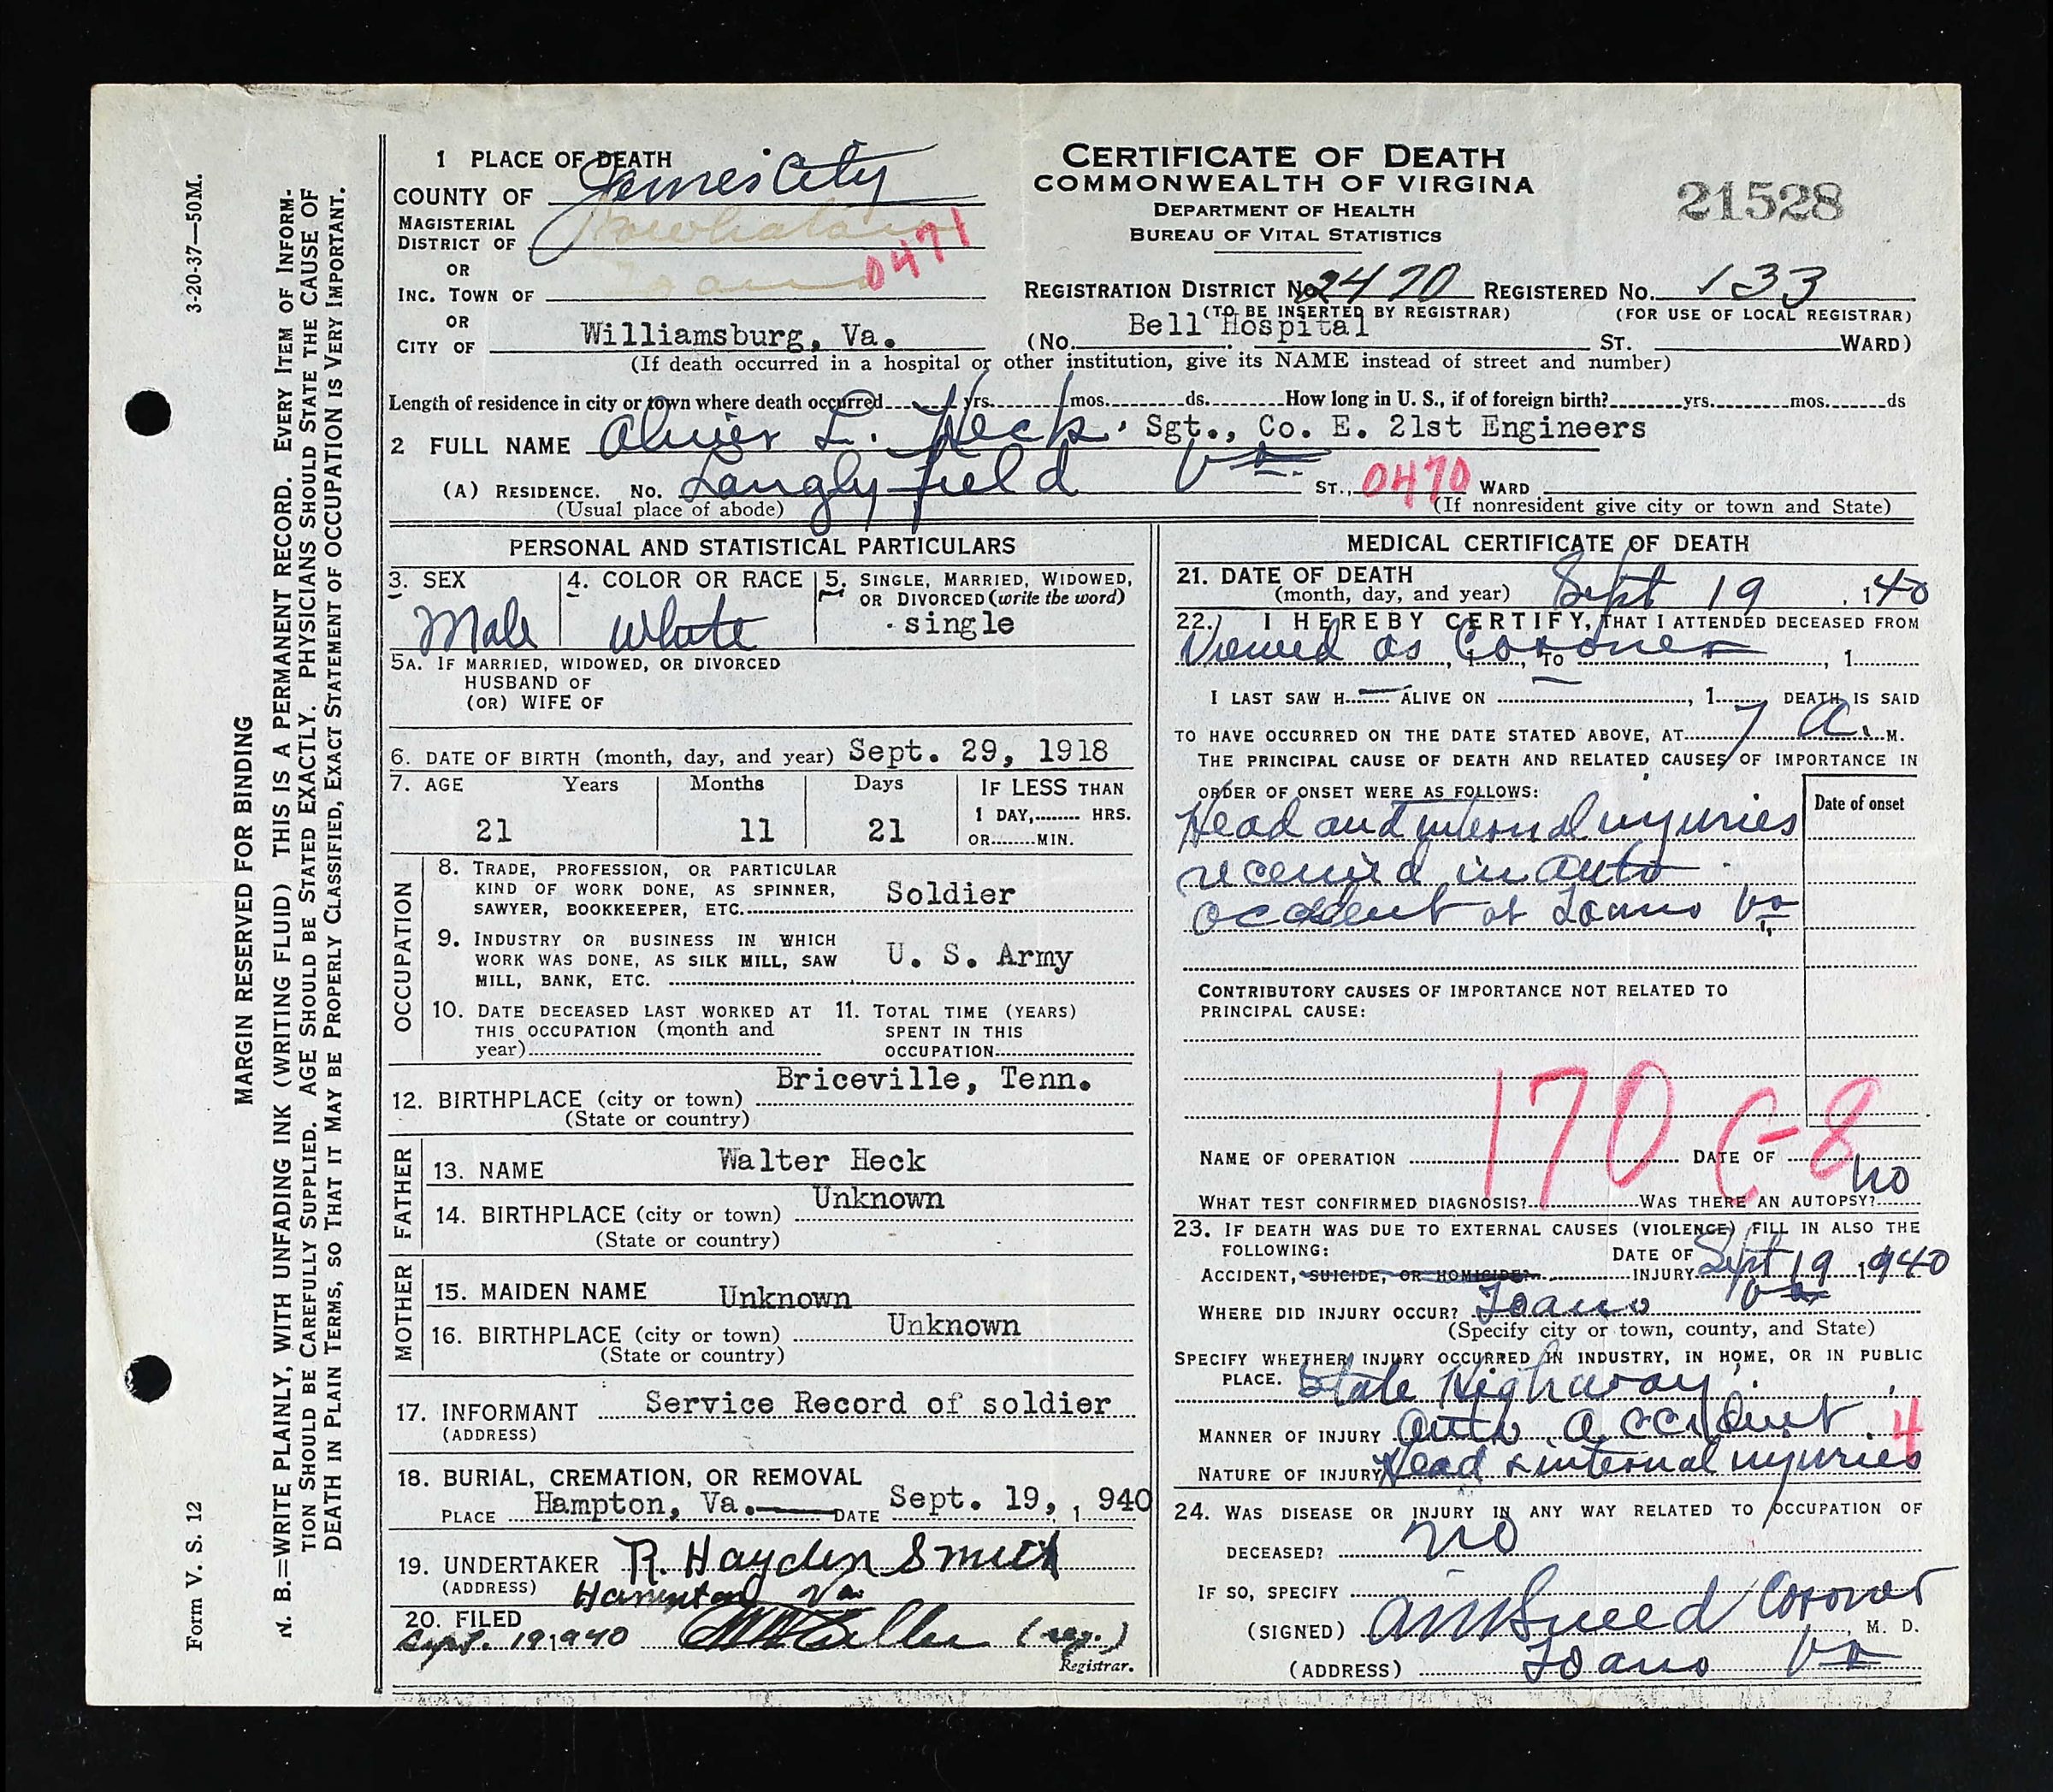 3-20-37—50M.
Form V. S. 12
MARGIN RESERVED FOR BINDING
N. B.=WRITE PLAINLY, WITH UNFADING INK (WRITING FLUID) THIS IS A PERMANENT RECORD. EVERY ITEM OF INFORM-
TION SHOULD BE CAREFULLY SUPPLIED. AGE SHOULD BE STATED EXACTLY. PHYSICIANS SHOULD STATE THE CAUSE OF
DEATH IN PLAIN TERMS, SO THAT IT MAY BE PROPERLY CLASSIFIED, EXACT STATEMENT OF OCCUPATION IS VERY IMPORTANT.
CERTIFICATE OF DEATH
COMMONWEALTH OF VIRGINA
DEPARTMENT OF HEALTH
BUREAU OF VITAL STATISTICS
21528
1 PLACE OF DEATH
COUNTY OF James City
MAGISTERIAL DISTRICT OF Powhatan
0471
OR
INC. TOWN OF Toano
OR
CITY OF Williamsburg, Va.
REGISTRATION DISTRICT No. 2470 REGISTERED No. 133
(TO BE INSERTED BY REGISTRAR) (FOR USE OF LOCAL REGISTRAR)
(No. Bell Hospital ST. WARD)
(If death occurred in a hospital or other institution, give its NAME instead of street and number)
Length of residence in city or town where death occurred yrs. mos. ds. How long in U. S., if of foreign birth? yrs. mos. ds
2 FULL NAME Oliver L. Heck. Sgt., Co. E. 21st Engineers
(A) RESIDENCE. No. Langly field Va. ST., 0470 WARD
(Usual place of abode) (If nonresident give city or town and State)
PERSONAL AND STATISTICAL PARTICULARS
3. SEX Male
4. COLOR OR RACE White
5. SINGLE, MARRIED, WIDOWED, OR DIVORCED (write the word) single
5A. IF MARRIED, WIDOWED, OR DIVORCED
HUSBAND OF
(OR) WIFE OF
6. DATE OF BIRTH (month, day, and year) Sept. 29, 1918
7. AGE Years Months Days IF LESS THAN
1 DAY, HRS.
21 11 21 OR MIN.
OCCUPATION
8. TRADE, PROFESSION, OR PARTICULAR
KIND OF WORK DONE, AS SPINNER,
SAWYER, BOOKKEEPER, ETC. Soldier
9. INDUSTRY OR BUSINESS IN WHICH
WORK WAS DONE, AS SILK MILL, SAW
MILL, BANK, ETC. U. S. Army
10. DATE DECEASED LAST WORKED AT
THIS OCCUPATION (month and
year)
11. TOTAL TIME (YEARS)
SPENT IN THIS
OCCUPATION
12. BIRTHPLACE (city or town) Briceville, Tenn.
(State or country)
FATHER
13. NAME Walter Heck
14. BIRTHPLACE (city or town) Unknown
(State or country)
MOTHER
15. MAIDEN NAME Unknown
16. BIRTHPLACE (city or town) Unknown
(State or country)
17. INFORMANT Service Record of soldier
(ADDRESS)
18. BURIAL, CREMATION, OR REMOVAL
PLACE Hampton, Va. DATE Sept. 19, 1940
19. UNDERTAKER R. Hayden Smith
(ADDRESS) Hampton Va
20. FILED
Sept. 19 1940 (reg.)
Registrar.
MEDICAL CERTIFICATE OF DEATH
21. DATE OF DEATH
(month, day, and year) Sept 19, 140
22. I HEREBY CERTIFY, THAT I ATTENDED DECEASED FROM
Viewed as Coroner, 1 , TO , 1
I LAST SAW H ALIVE ON , 1 DEATH IS SAID
TO HAVE OCCURRED ON THE DATE STATED ABOVE, AT 7 a. M.
THE PRINCIPAL CAUSE OF DEATH AND RELATED CAUSES OF IMPORTANCE IN
ORDER OF ONSET WERE AS FOLLOWS:
Date of onset
Head and internal injuries
received in auto
accident at Toano Va
CONTRIBUTORY CAUSES OF IMPORTANCE NOT RELATED TO
PRINCIPAL CAUSE:
170 C-8
NAME OF OPERATION DATE OF
WHAT TEST CONFIRMED DIAGNOSIS? WAS THERE AN AUTOPSY? no
23. IF DEATH WAS DUE TO EXTERNAL CAUSES (VIOLENCE) FILL IN ALSO THE
FOLLOWING:
ACCIDENT, SUICIDE, OR HOMICIDE? DATE OF INJURY Sept 19 1940
WHERE DID INJURY OCCUR? Toano Va
(Specify city or town, county, and State)
SPECIFY WHETHER INJURY OCCURRED IN INDUSTRY, IN HOME, OR IN PUBLIC
PLACE. State Highway
MANNER OF INJURY Auto accident 4
NATURE OF INJURY Head & internal injuries
24. WAS DISEASE OR INJURY IN ANY WAY RELATED TO OCCUPATION OF
DECEASED? no
IF SO, SPECIFY
(SIGNED) A M Sneed Coroner, M. D.
(ADDRESS) Toano Va